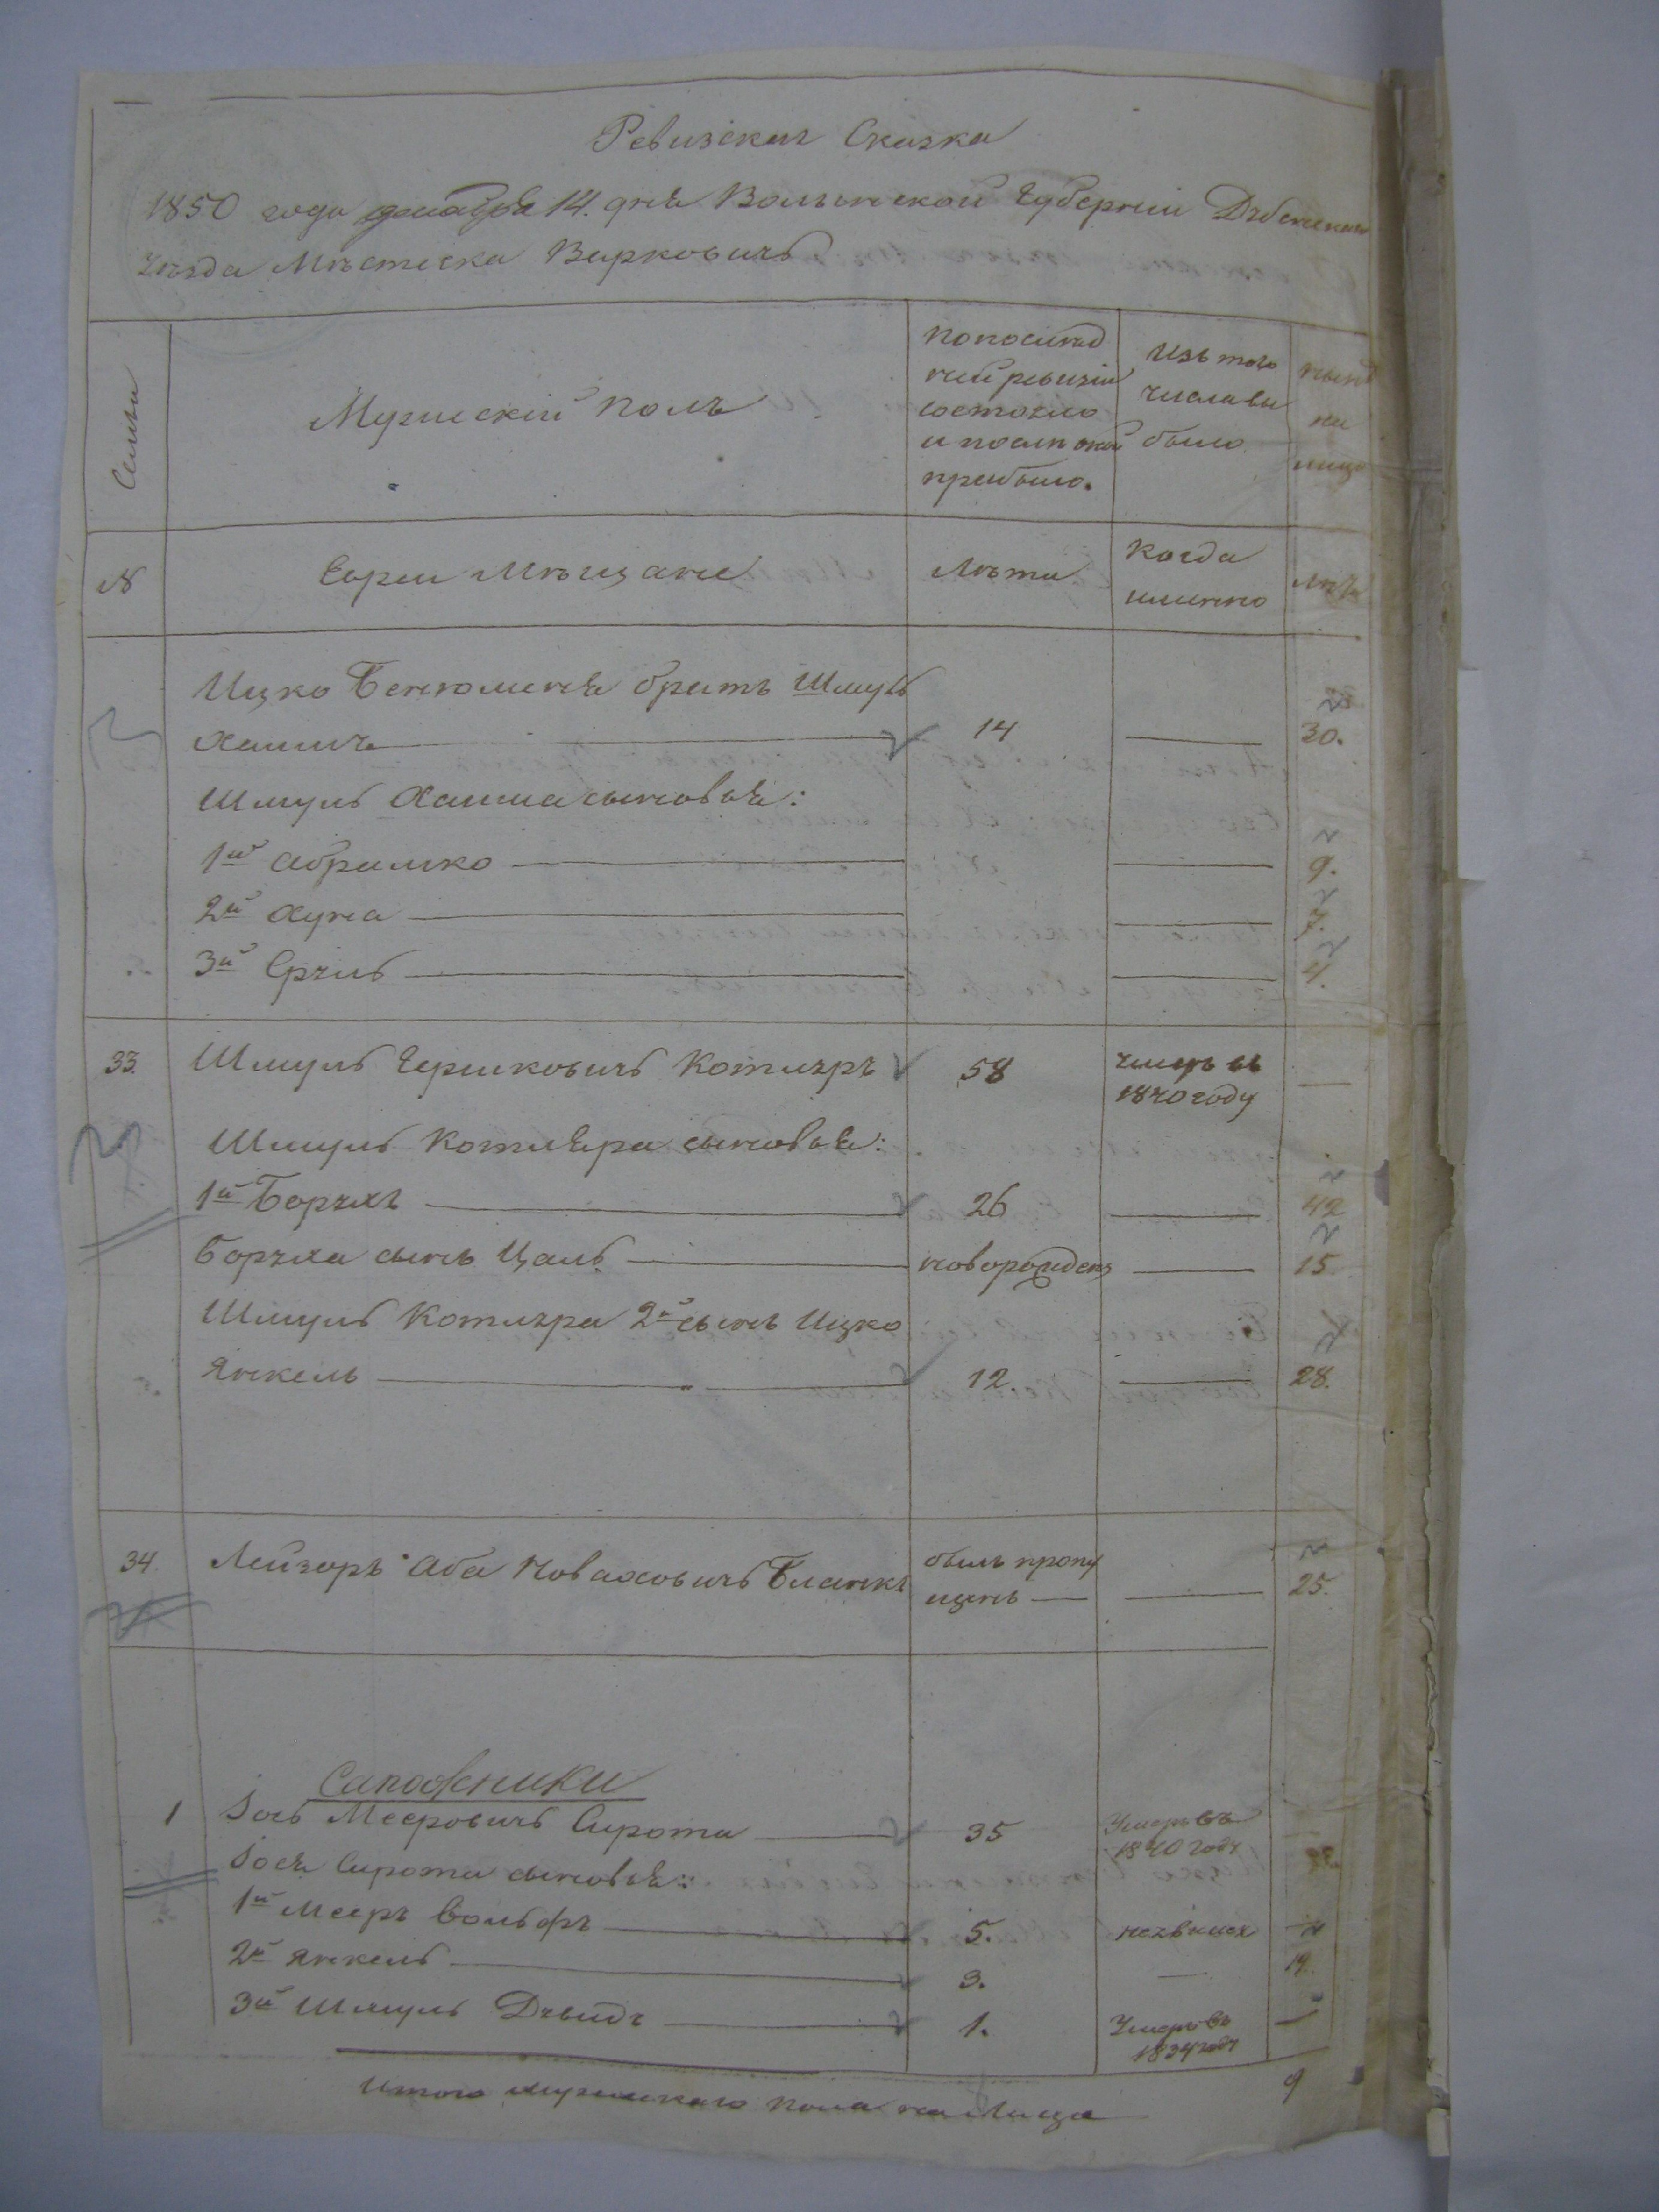 Ревизская Сказка
1850 года декабря 14. дня Волынской Губернии Дубенскаго
Уезда Мѣстечка Варковичь
Семьи
Мужескій полъ
По послѣд
ней ревизіи
состояло
и послѣ оной
прибыло.
Изъ того
числа вы
было
нынѣ
на
лицо
№
Евреи Мѣщане
Лѣта
Когда
именно
Лѣта
Ицко Бенюмина братъ Шмуль
Хаимъ 14 30.
Шмуль Хаима сыновья:
1й Абрамко 9.
2й Хуна 7.
3й Сруль 4.
33. Шмуль Гершковичь Котляръ 58 умеръ въ
1840 году
Шмуль Котляра сыновья:
1й Борухъ 26 42
Боруха сынъ Цаль новорожденъ 15
Шмуль Котляра 2й сынъ Ицко
Янкель 12. 28.
34. Лейзоръ Аба Новаховичь Бланкъ былъ пропу
щенъ 25.
Сапожники
1 Іось Мееровичь Сирота 35 Умеръ въ
1840 году
Іося Сироты сыновья:
1й Мееръ Вольфъ 5. неявился
2й Янкель 3. 19.
3й Шмуль Давидъ 1. Умеръ въ
1834 году
Итого мужескаго пола на Лицо 9